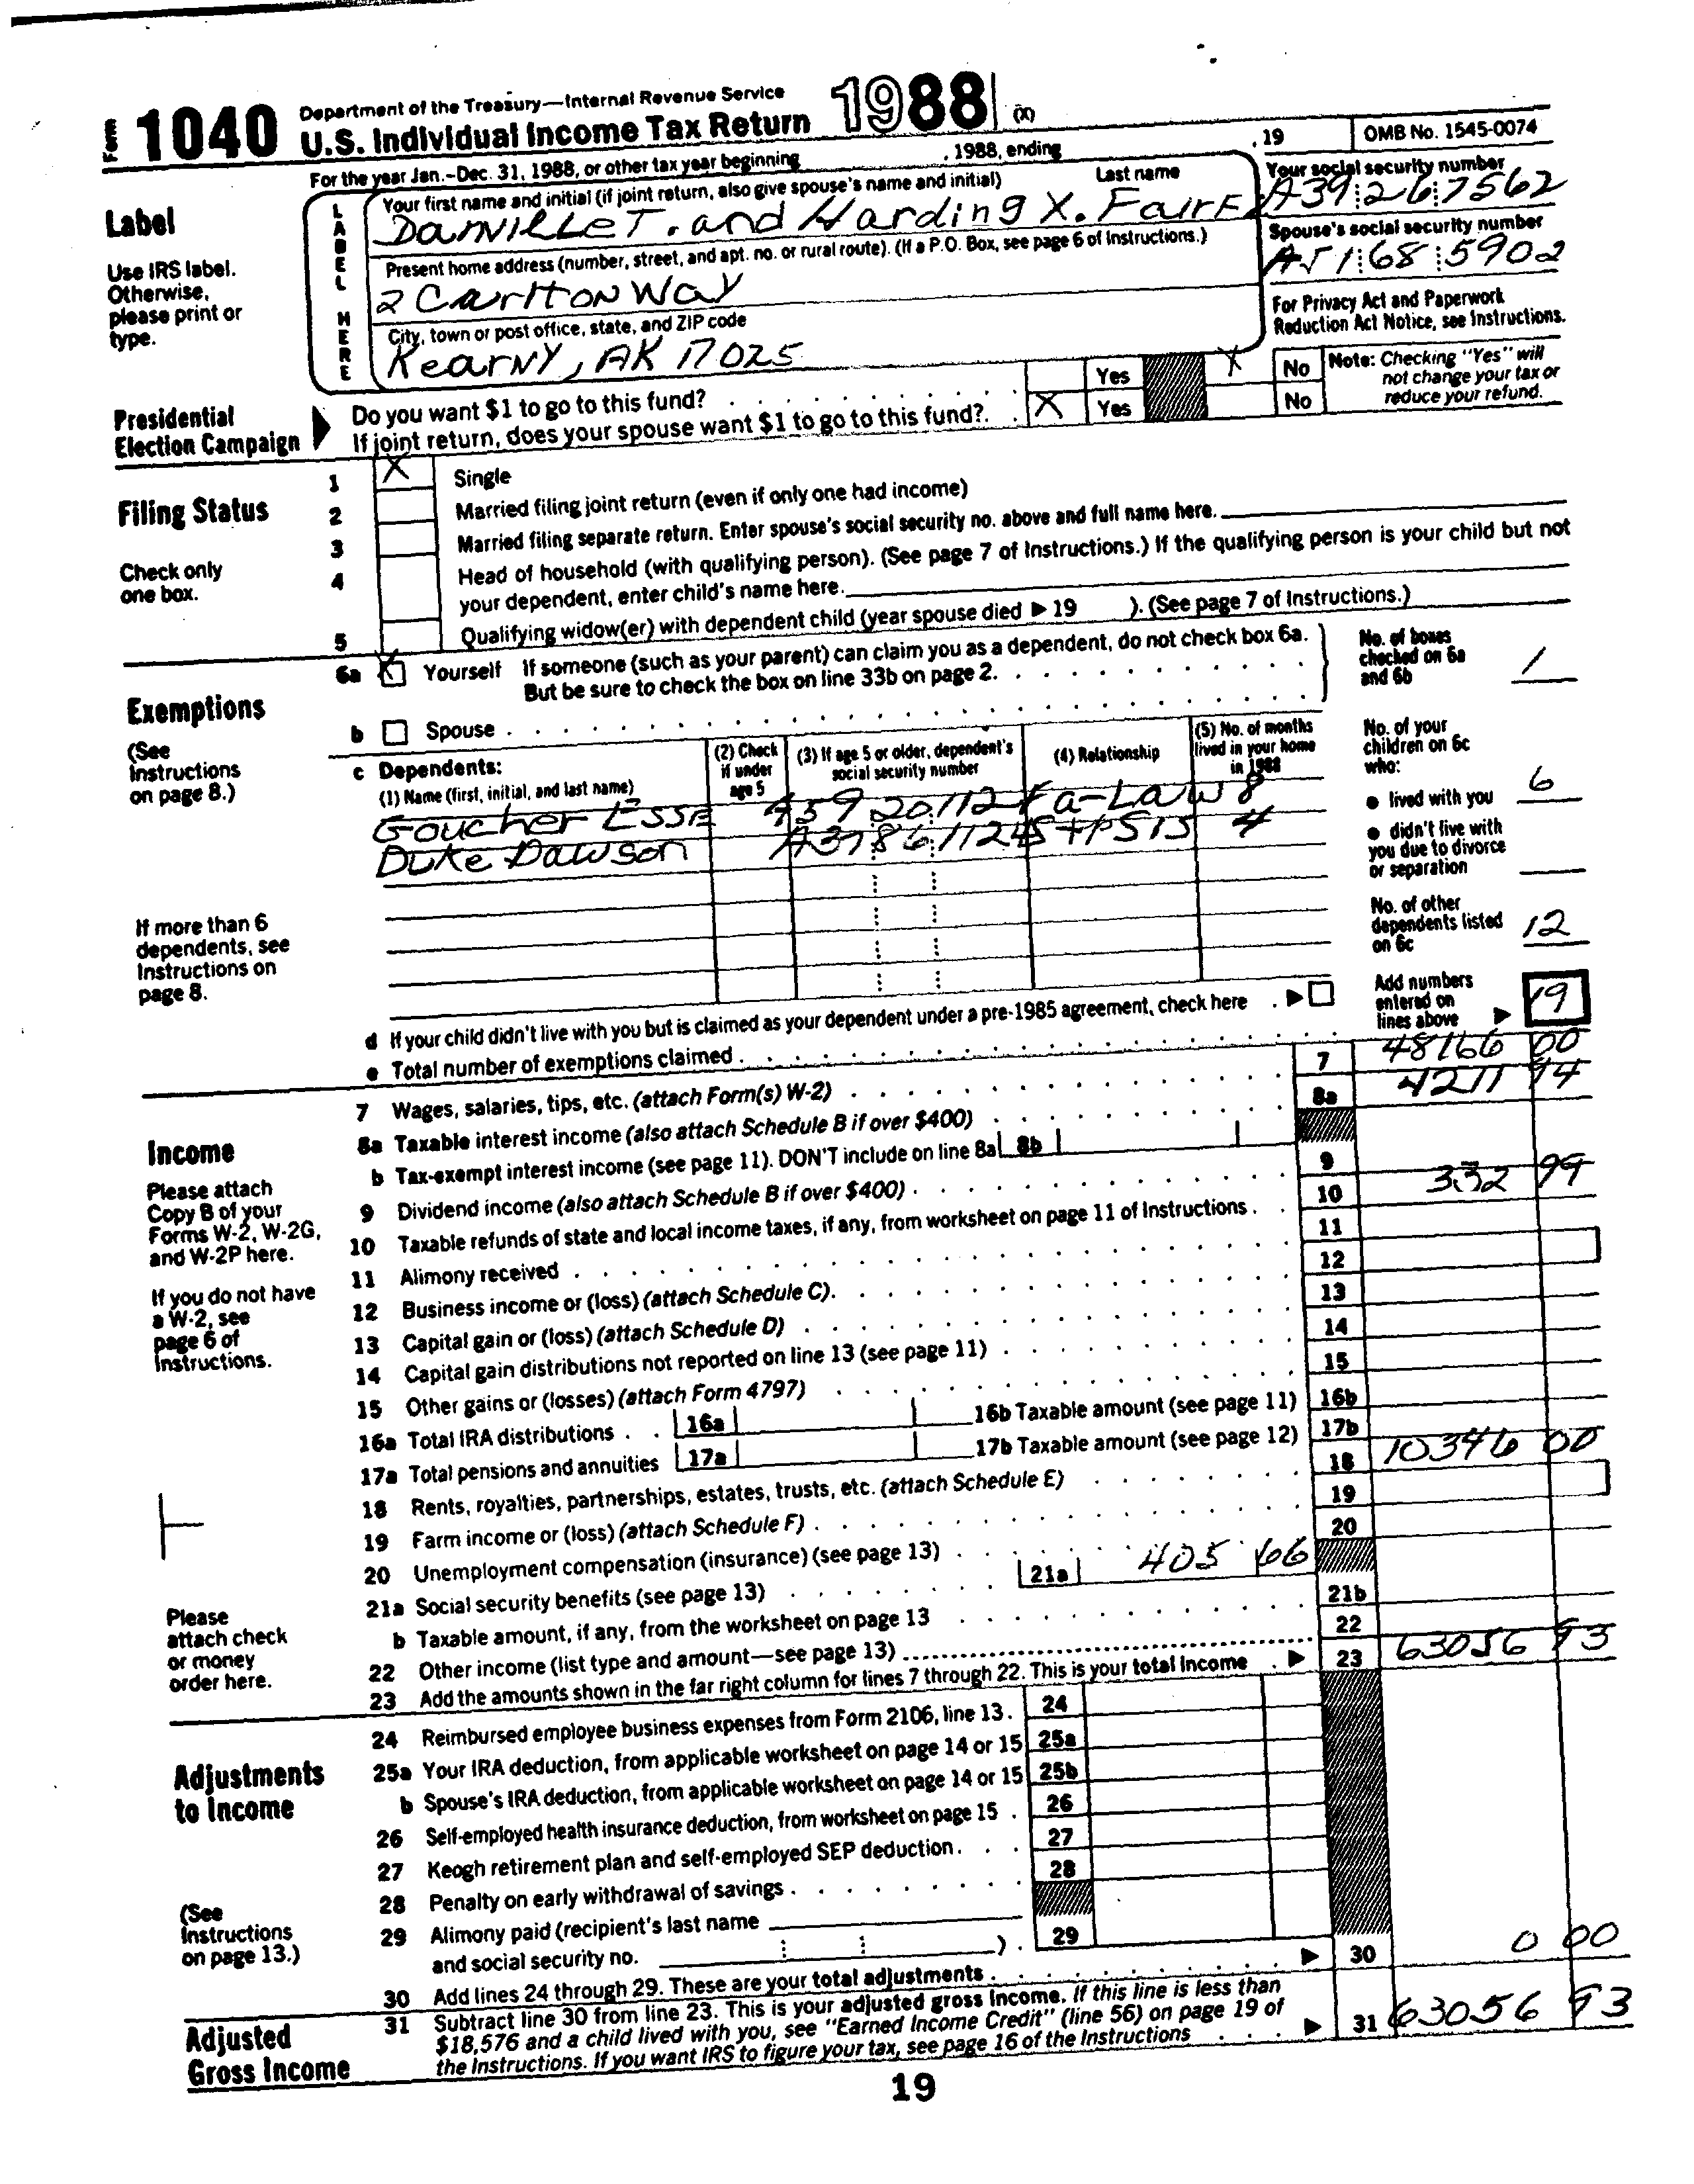 Form 1040 Department of the Treasury—Internal Revenue Service
U.S. Individual Income Tax Return 1988 (X)
For the year Jan.–Dec. 31, 1988, or other tax year beginning , 1988, ending , 19 OMB No. 1545-0074
Label
Use IRS label.
Otherwise,
please print or
type.
LABEL HERE
Your first name and initial (if joint return, also give spouse's name and initial) Last name
Danville T. and Harding X. FairF
Your social security number
A39 26 7562
Present home address (number, street, and apt. no. or rural route). (If a P.O. Box, see page 6 of Instructions.)
2 Carlton Way
Spouse's social security number
A51 68 5902
City, town or post office, state, and ZIP code
Kearny, AK 17025
For Privacy Act and Paperwork
Reduction Act Notice, see Instructions.
Presidential
Election Campaign
Do you want $1 to go to this fund? Yes X No
If joint return, does your spouse want $1 to go to this fund? X Yes No
Note: Checking "Yes" will
not change your tax or
reduce your refund.
Filing Status
Check only
one box.
1 X Single
2 Married filing joint return (even if only one had income)
3 Married filing separate return. Enter spouse's social security no. above and full name here.
4 Head of household (with qualifying person). (See page 7 of Instructions.) If the qualifying person is your child but not
your dependent, enter child's name here.
5 Qualifying widow(er) with dependent child (year spouse died ▶ 19 ). (See page 7 of Instructions.)
Exemptions
(See
Instructions
on page 8.)
6a X Yourself If someone (such as your parent) can claim you as a dependent, do not check box 6a.
But be sure to check the box on line 33b on page 2.
b Spouse
No. of boxes
checked on 6a
and 6b 1
c Dependents:
(1) Name (first, initial, and last name)
(2) Check
if under
age 5
(3) If age 5 or older, dependent's
social security number
(4) Relationship
(5) No. of months
lived in your home
in 1988
Goucher Esse 459 20 112 Fa-Law 8
Duke Dawson A37 86 1124 StpSis 4
No. of your
children on 6c
who:
● lived with you 6
● didn't live with
you due to divorce
or separation
No. of other
dependents listed
on 6c 12
If more than 6
dependents, see
Instructions on
page 8.
d If your child didn't live with you but is claimed as your dependent under a pre-1985 agreement, check here
e Total number of exemptions claimed
Add numbers
entered on
lines above ▶ 19
Income
Please attach
Copy B of your
Forms W-2, W-2G,
and W-2P here.
If you do not have
a W-2, see
page 6 of
Instructions.
Please
attach check
or money
order here.
7 Wages, salaries, tips, etc. (attach Form(s) W-2) 7 48166 00
8a Taxable interest income (also attach Schedule B if over $400) 8a 4211 94
b Tax-exempt interest income (see page 11). DON'T include on line 8a 8b
9 Dividend income (also attach Schedule B if over $400) 9
10 Taxable refunds of state and local income taxes, if any, from worksheet on page 11 of Instructions 10 332 99
11 Alimony received 11
12 Business income or (loss) (attach Schedule C) 12
13 Capital gain or (loss) (attach Schedule D) 13
14 Capital gain distributions not reported on line 13 (see page 11) 14
15 Other gains or (losses) (attach Form 4797) 15
16a Total IRA distributions 16a 16b Taxable amount (see page 11) 16b
17a Total pensions and annuities 17a 17b Taxable amount (see page 12) 17b
18 Rents, royalties, partnerships, estates, trusts, etc. (attach Schedule E) 18 10346 00
19 Farm income or (loss) (attach Schedule F) 19
20 Unemployment compensation (insurance) (see page 13) 20
21a Social security benefits (see page 13) 21a 405 66
b Taxable amount, if any, from the worksheet on page 13 21b
22 Other income (list type and amount—see page 13) 22
23 Add the amounts shown in the far right column for lines 7 through 22. This is your total income ▶ 23 63056 93
Adjustments
to Income
(See
Instructions
on page 13.)
24 Reimbursed employee business expenses from Form 2106, line 13 24
25a Your IRA deduction, from applicable worksheet on page 14 or 15 25a
b Spouse's IRA deduction, from applicable worksheet on page 14 or 15 25b
26 Self-employed health insurance deduction, from worksheet on page 15 26
27 Keogh retirement plan and self-employed SEP deduction 27
28 Penalty on early withdrawal of savings 28
29 Alimony paid (recipient's last name
and social security no. ) 29
30 Add lines 24 through 29. These are your total adjustments ▶ 30 0 00
Adjusted
Gross Income
31 Subtract line 30 from line 23. This is your adjusted gross income. If this line is less than
$18,576 and a child lived with you, see "Earned Income Credit" (line 56) on page 19 of
the Instructions. If you want IRS to figure your tax, see page 16 of the Instructions ▶ 31 63056 93
19